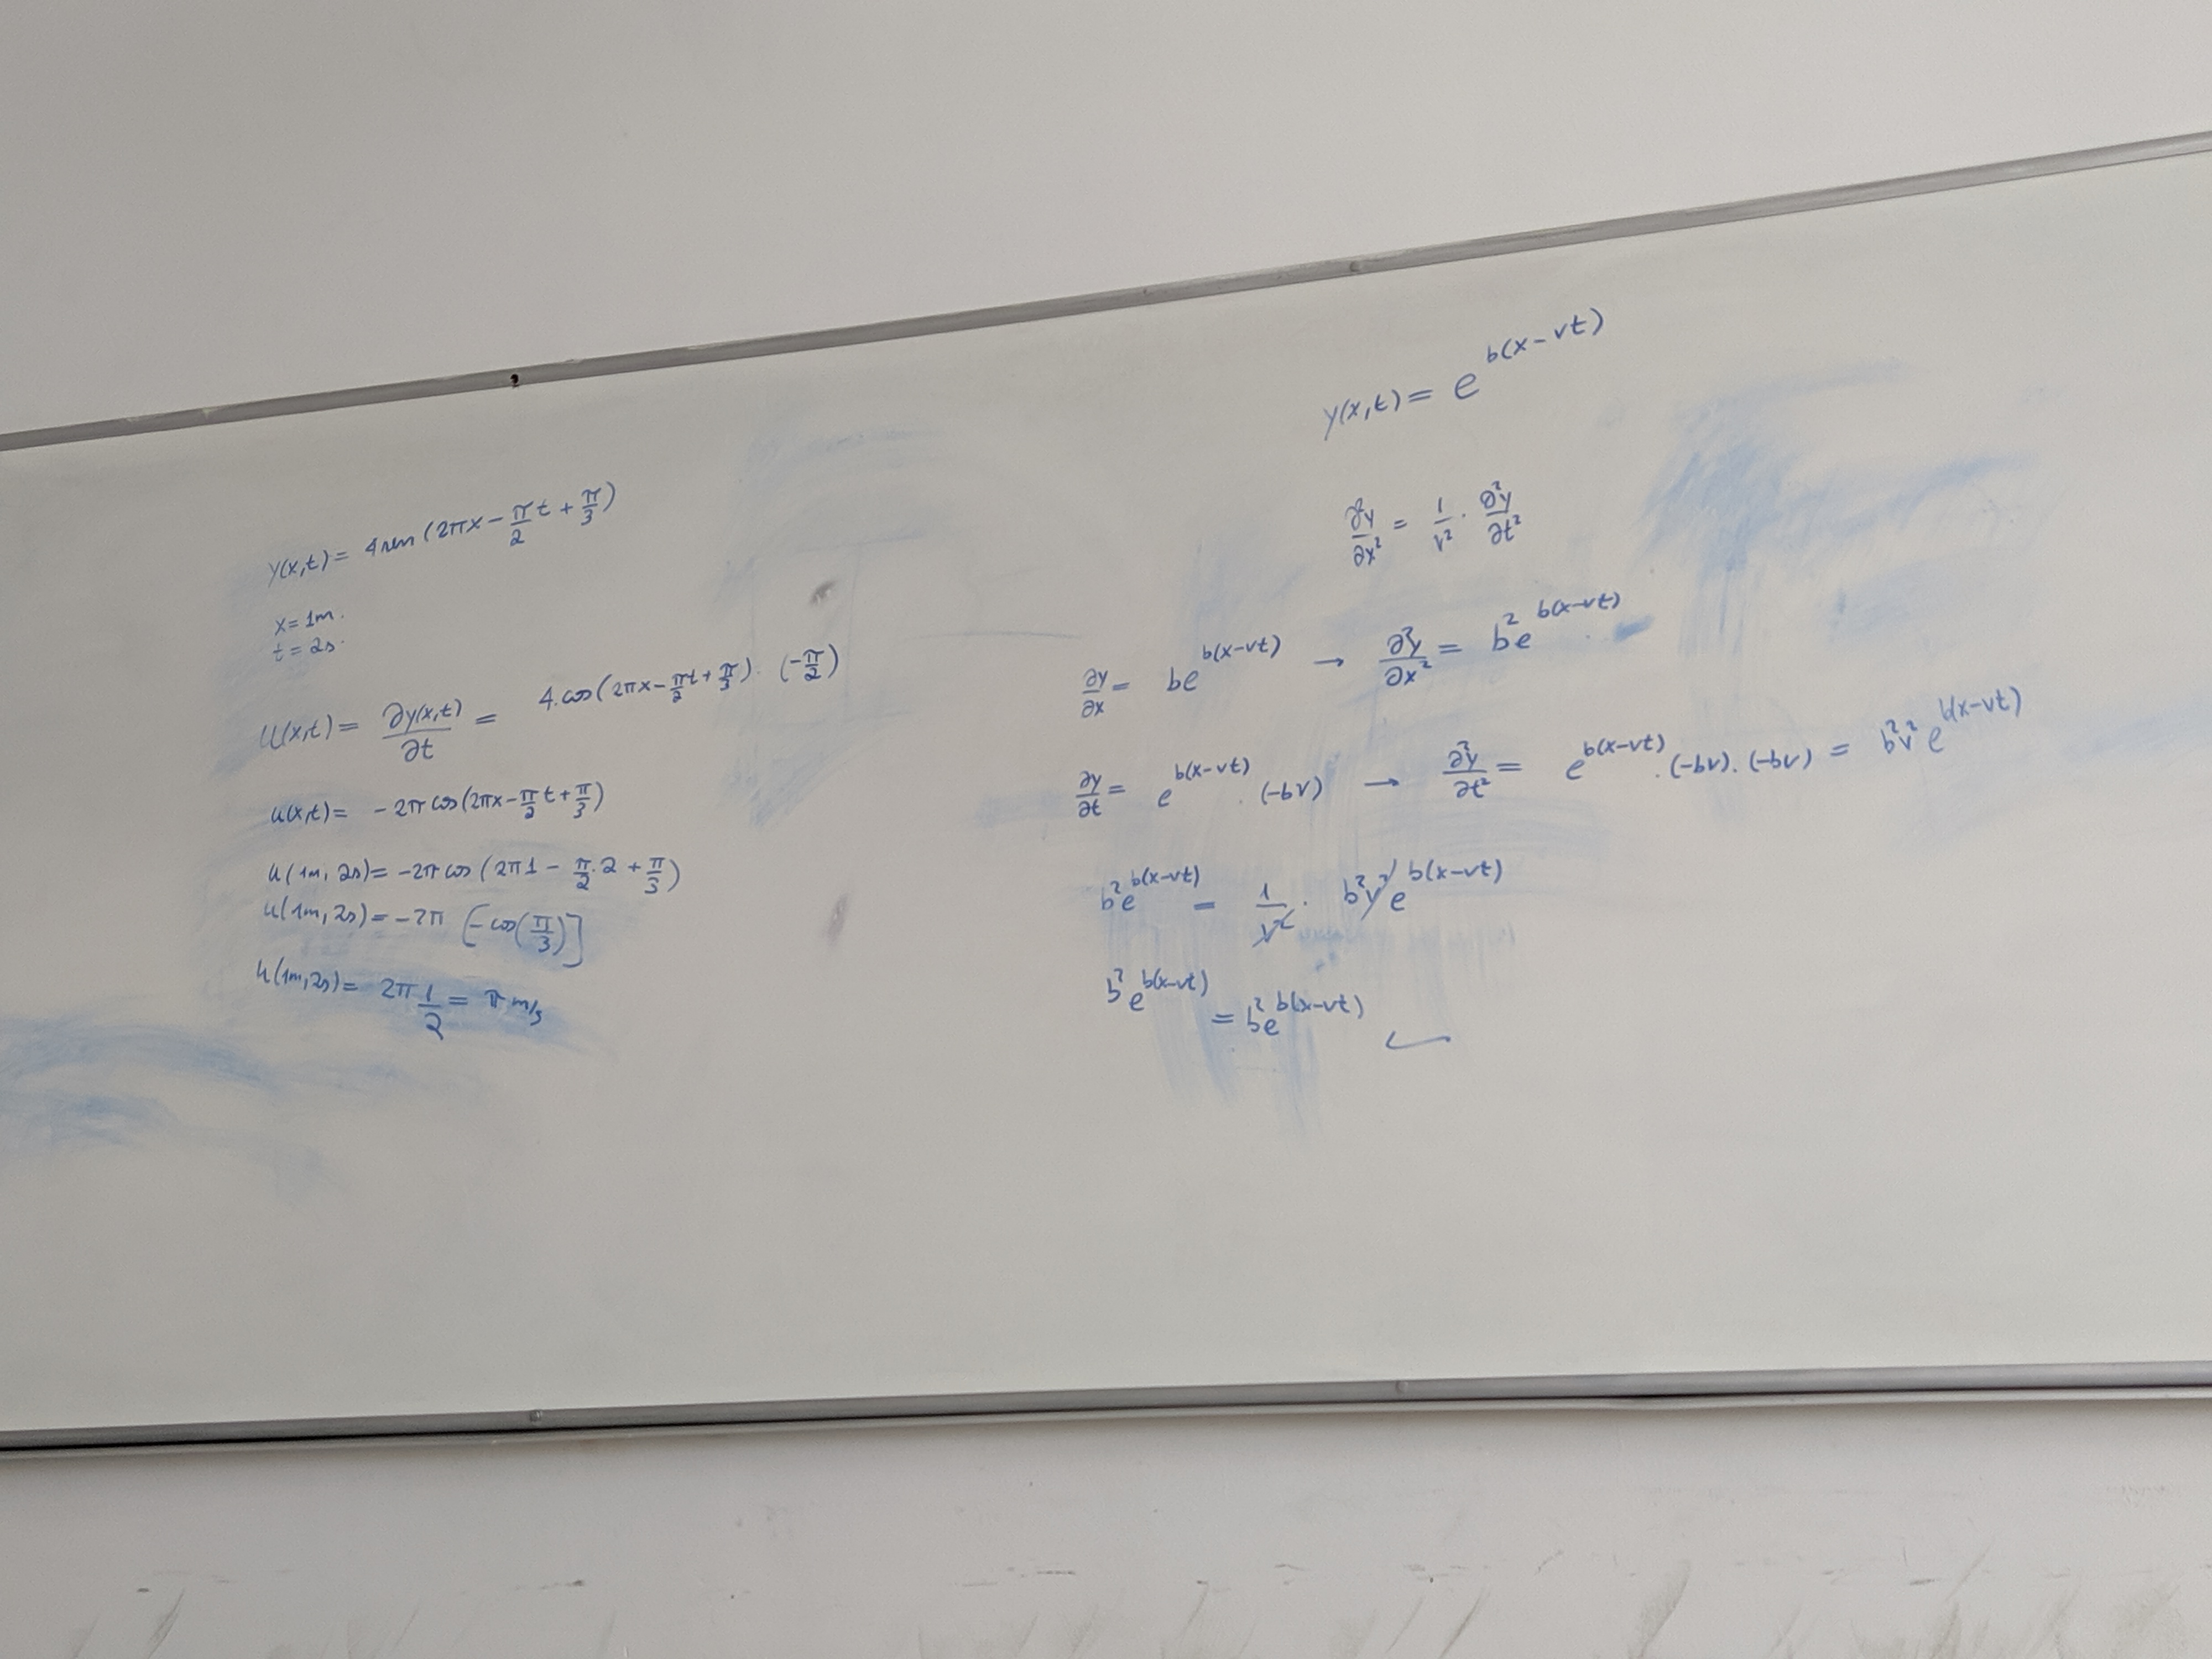 y(x,t) = 4 sen (2πx − π/2 t + π/3)
x = 1m.
t = 2s.
U(x,t) = ∂y(x,t)/∂t = 4.cos(2πx − π/2 t + π/3) · (−π/2)
u(x,t) = −2π cos(2πx − π/2 t + π/3)
u(1m, 2s) = −2π cos (2π1 − π/2 · 2 + π/3)
u(1m, 2s) = −2π [−cos(π/3)]
u(1m, 2s) = 2π 1/2 = π m/s
y(x,t) = e^{b(x−vt)}
∂²y/∂x² = 1/v² · ∂²y/∂t²
∂y/∂x = be^{b(x−vt)} → ∂²y/∂x² = b²e^{b(x−vt)}
∂y/∂t = e^{b(x−vt)} · (−bv) → ∂²y/∂t² = e^{b(x−vt)} · (−bv) · (−bv) = b²v² e^{b(x−vt)}
b²e^{b(x−vt)} = 1/v² · b²v² e^{b(x−vt)}
b²e^{b(x−vt)} = b²e^{b(x−vt)} ✓